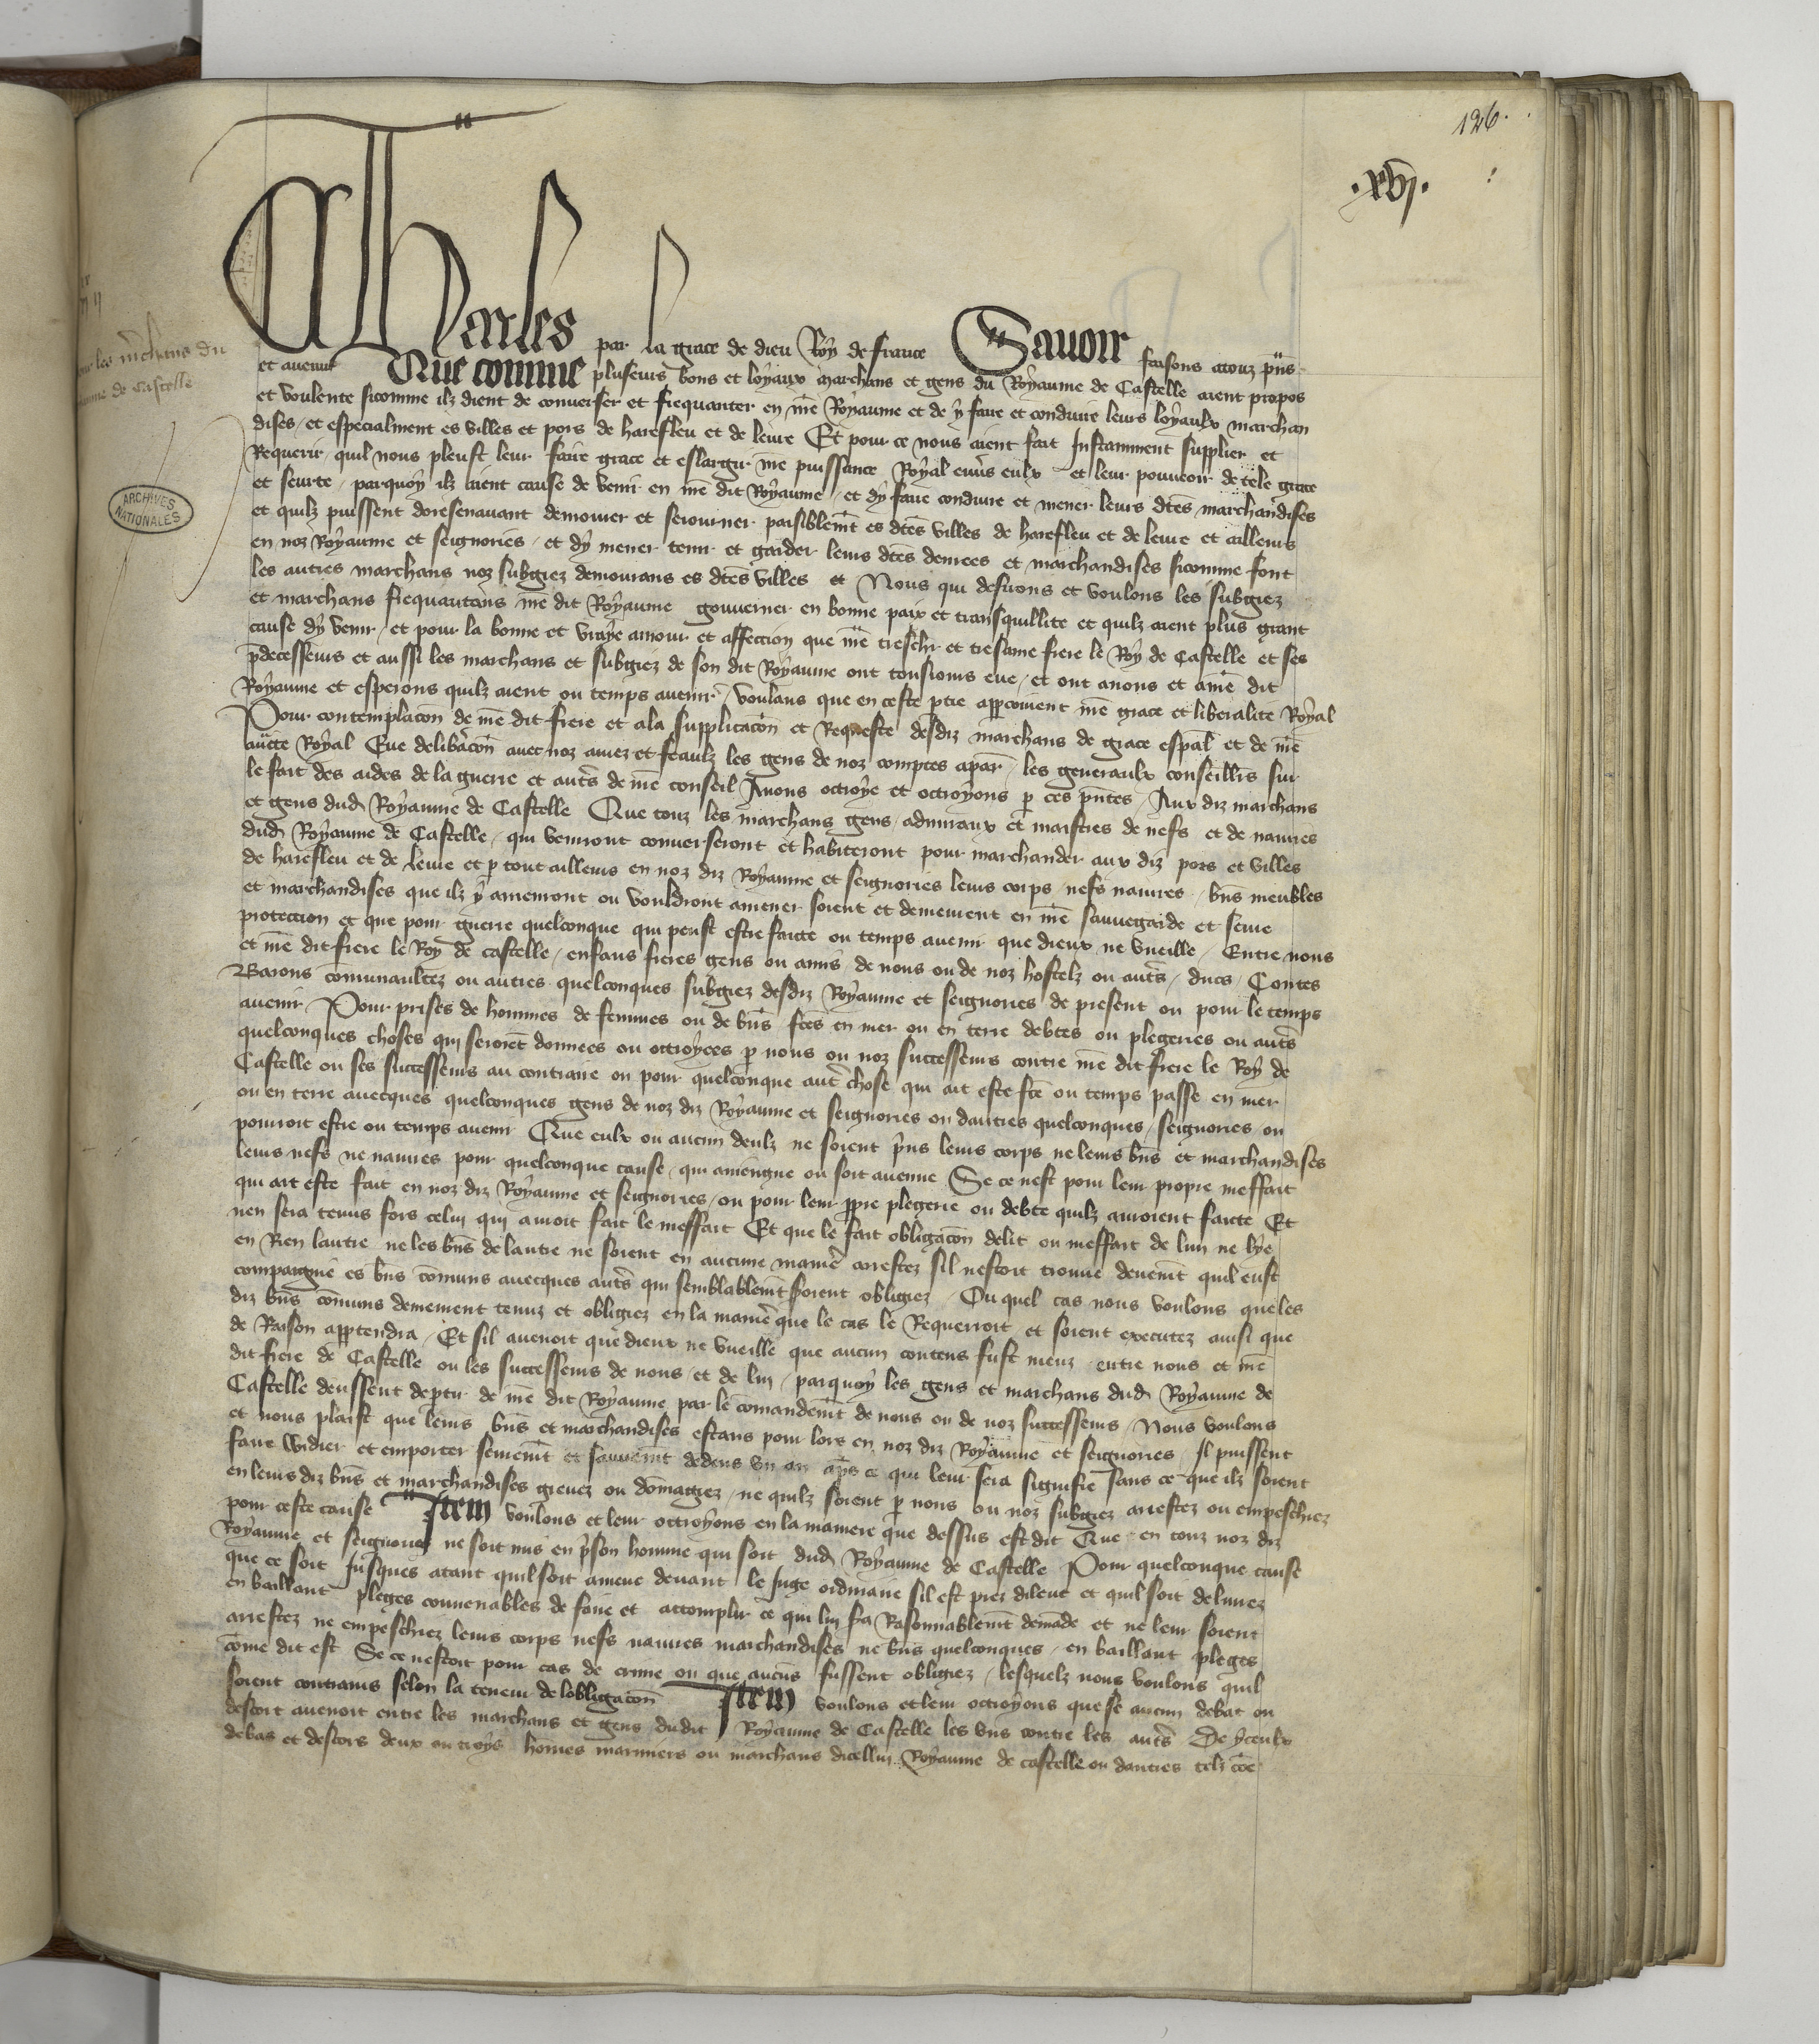 126.
.xvj.
les mchans du
aume de Castelle
ARCHIVES
NATIONALES
Charles par la grace de dieu Roy de france Savoir faisons atouz pñs
et avenir Que comme pluseurs bons et loyaux marchans et gens du Royaume de Castelle aient propos
et voulente sicomme ilz dient de converser et frequanter en ñre Royaume et de y faire et conduire leurs loyaulx marchan
dises / et especialment es villes et pors de harefleu et de leure Et pour ce nous aient fait Instamment supplier et
Requerir / quil nous pleust leur faire grace et eslargir ñre puissance Royal envs eulx et leur pourveoir de tele grace
et seurte / parquoy ilz aient cause de venir en ñre dit Royaume / et dy faire conduire et mener leurs dtes marchandises
et quilz puissent doresenavant demourer et seiourner paisiblemt es dtes villes de harefleu et de leure et ailleurs
en noz Royaume et seignories / et dy mener tenir et garder leurs dtes denrees et marchandises sicomme font
les autres marchans noz subgiez demourans es dtes villes et Nous qui desirons et voulons les subgiez
et marchans frequantans ñre dit Royaume gouverner en bonne paix et transquillite et quilz aient plus grant
cause dy venir / et pour la bonne et vraye amour et affection que ñre treschr et tresame frere le Roy de Castelle et ses
pdecesseurs et aussi les marchans et subgiez de son dit Royaume ont tousiours eue / et ont anous et a ñre dit
Royaume et esperons quilz aient ou temps avenir / voulans que en ceste ptie appcoivent ñre grace et liberalite Royal
Pour contemplacon de ñre dit frere et ala supplicacon et Requeste desdiz marchans de grace espal et de ñre
aucte Royal Eue delibacon avec noz amez et feaulz les gens de noz comptes apar / les generaulx conseillrs sur
le fait des aides de la guerre et auts de ñre conseil Avons octroye et octroyons p ces pntes / Aux diz marchans
et gens dud Royaume de Castelle Que touz les marchans gens / admiraux et maistres de nefs et de navires
dud Royaume de Castelle / qui venront converseront et habiteront pour marchander aux diz pors et villes
de harefleu et de leure et p tout ailleurs en noz diz Royaume et seignories leurs corps / nefs navires / bns meubles
et marchandises que ilz y amenront ou vouldront amener soient et demeurent en ñre sauvegarde et seure
protection et que pour guerre quelconque qui peust estre faicte ou temps avenir que dieux ne vueille / Entre nous
et ñre dit frere le Roy de castelle / enfans freres gens ou amis de nous ou de noz hostelz ou auts / ducs / Contes
Barons communaultez ou autres quelconques subgiez desdiz Royaume et seignories de present ou pour le temps
avenir / Pour prises de hommes de femmes ou de bns ftes en mer ou en terre debtes ou plegeries ou auts
quelconques choses qui seroient donnees ou octroyees p nous ou noz successeurs contre ñre dit frere le Roy de
Castelle ou ses successeurs au contraire ou pour quelconque aut chose qui ait este fte ou temps passe en mer
ou en terre avecques quelconques gens de noz diz Royaume et seignories ou dautres quelconques / seignories ou
pourroit estre ou temps avenir Que eulx ou aucun deulz ne soient pns leurs corps ne leurs bns et marchandises
leurs nefs ne navires pour quelconque cause / qui aviengne ou soit avenue Se ce nest pour leur propre meffait
qui ait este fait en noz diz Royaume et seignories / ou pour leur ppre plegerie ou debte quilz auroient faicte Et
nen sera tenus fors celui qui auroit fait le meffait Et que le fait obligacon delit ou meffait de lun ne lye
en Rien lautre ne les bns de lautre ne soient en aucune manie arrestez sil nestoit trouve devemt quil eust
compaignie es bns comuns avecques auts qui semblablemt soient obligiez / Ou quel cas nous voulons que les
diz bns comuns demeurent tenuz et obligiez en la manie que le cas le Requerroit et soient executez ainsi que
de Raison apptendra / Et sil avenoit que dieux ne vueille que aucun contens fust meuz entre nous et ñre
dit frere de Castelle ou les successeurs de nous / et de lui / parquoy les gens et marchans dud Royaume de
Castelle deussent deptir de ñre dit Royaume par le comandemt de nous ou de noz successeurs / Nous voulons
et nous plaist que leurs bns et marchandises estans pour lors en noz diz Royaume et seignories / Il puissent
faire widier et emporter seuremt et sauvemt dedens un an aps ce qui leur sera signifie sans ce que ilz soient
en leurs diz bns et marchandises grevez ou domagiez / ne quilz soient p nous ou noz subgiez arrestez ou empeschiez
pour ceste cause Item voulons et leur octroyons en la maniere que dessus est dit Que en touz noz diz
Royaume et seignories ne soit mis en pson homme qui soit dud Royaume de Castelle Pour quelconque cause
que ce soit Jusques atant quil soit amene devant le Juge ordinaire sil est prez dileuc et quil soit delivrez
en baillant pleges convenables de faire et accomplir ce qui lui sra Rasonnablemt demade et ne leur soient
arrestez ne empeschiez leurs corps nefs navires marchandises ne bns quelconques / en baillant pleges
come dit est Se ce nestoit pour cas de crime ou que aucuns fussent obligiez / lesquelz nous voulons quil
soient contrains selon la teneur de lobligacon Item voulons et leur octroyons que se aucun debat ou
descort avenoit entre les marchans et gens dudit Royaume de Castelle les uns contre les auts De yceulx
debas et descors deux ou troys homes mariniers ou marchans dicellui Royaume de castelle ou dautres telz coe